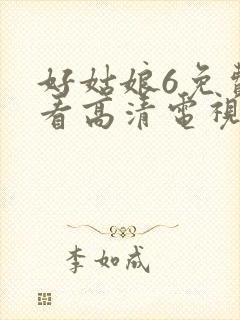 好姑娘6免費
看高清電視
李如成